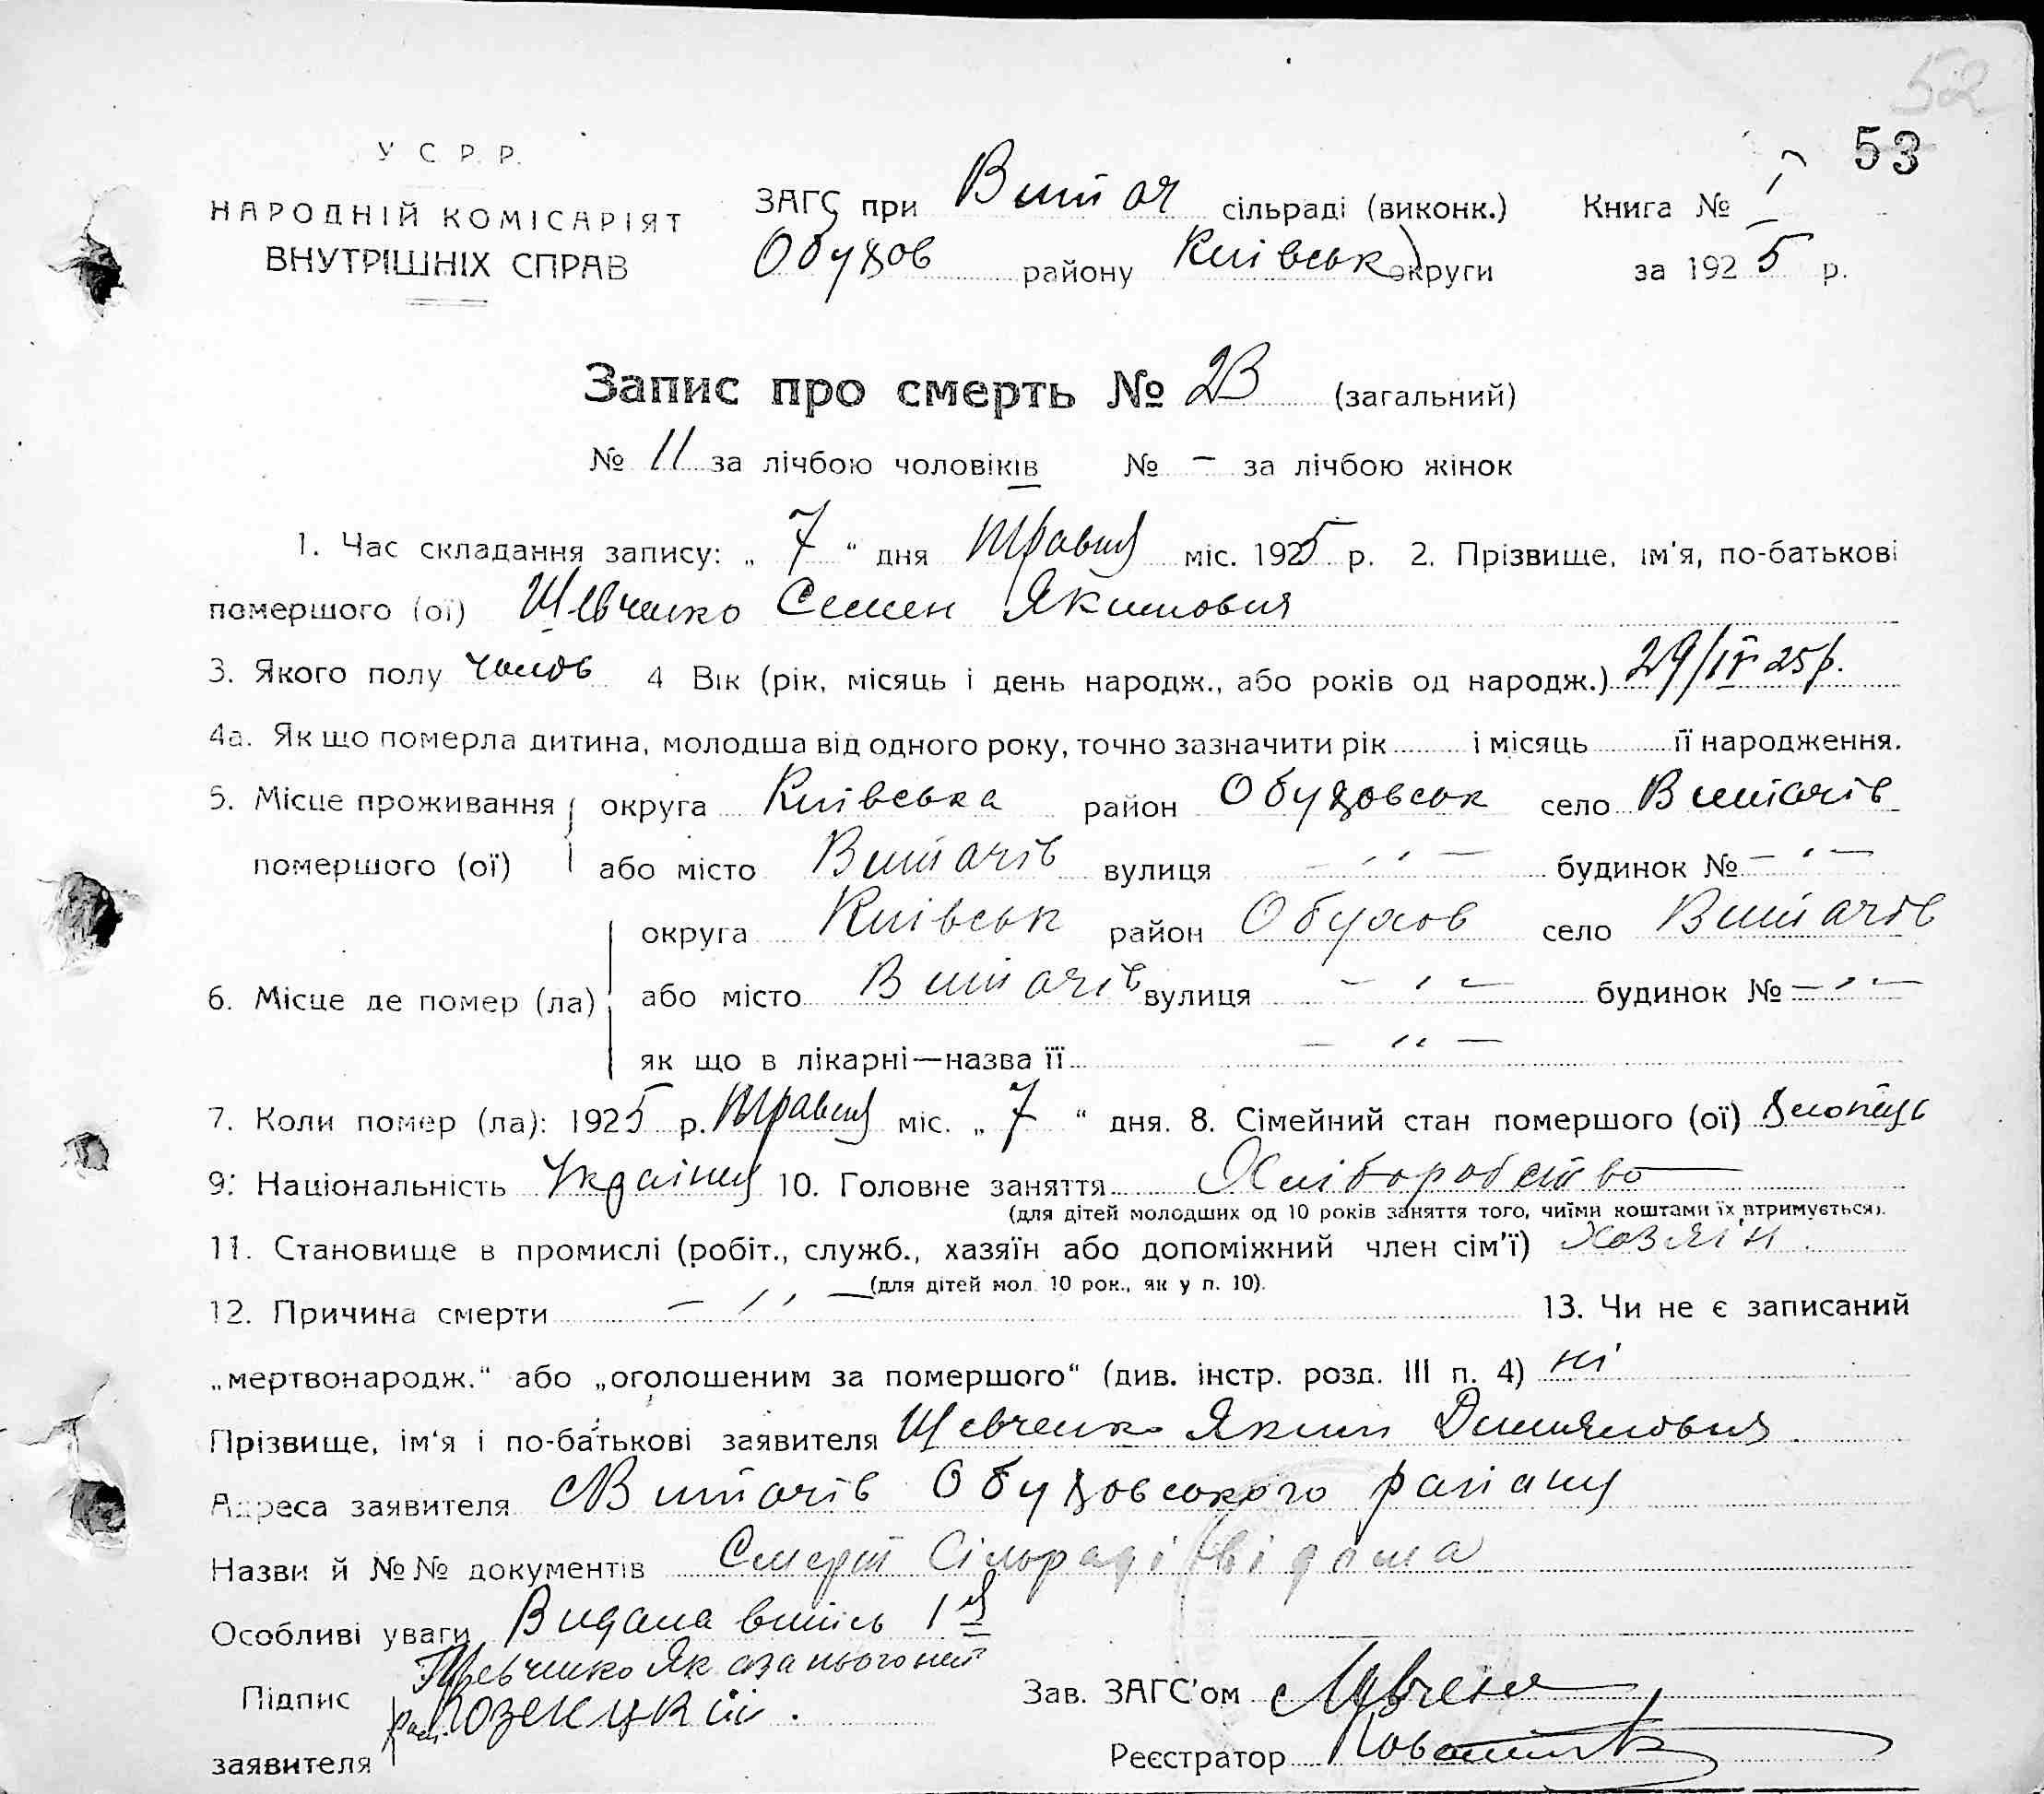 52
53
У С Р Р.
НАРОДНІЙ КОМІСАРІЯТ
ВНУТРІШНІХ СПРАВ
ЗАГС при Витач сільраді (виконк.) Книга № I
Обухов району Київськ округи за 1925 р.
Запис про смерть № 23 (загальний)
№ 11 за лічбою чоловіків № – за лічбою жінок
1. Час складання запису: „ 7 “ дня Травня міс. 1925 р. 2. Прізвище, ім'я, по-батькові
помершого (ої) Шевченко Семен Якимович
3. Якого полу чолов 4 Вік (рік, місяць і день народж., або років од народж.) 29/IV 25 р.
4а. Як що померла дитина, молодша від одного року, точно зазначити рік ... і місяць ... її народження.
5. Місце проживання округа Київська район Обуховськ село Витачів
помершого (ої) або місто Витачів вулиця – „ – будинок № – „ –
округа Київськ район Обухов село Витачів
6. Місце де помер (ла) або місто Витачів вулиця – „ – будинок № – „ –
як що в лікарні—назва її – „ –
7. Коли помер (ла): 1925 р. Травня міс. „ 7 “ дня. 8. Сімейний стан помершого (ої) хлопець
9. Національність Українец 10. Головне заняття Хліборобство
(для дітей молодших од 10 років заняття того, чиїми коштами їх втримується).
11. Становище в промислі (робіт., служб., хазяїн або допоміжний член сім'ї) Хозяїн.
(для дітей мол. 10 рок., як у п. 10).
12. Причина смерти – „ – 13. Чи не є записаний
„мертвонародж.“ або „оголошеним за помершого“ (див. інстр. розд. III п. 4) ні
Прізвище, ім'я і по-батькові заявителя Шевченко Яким
Адреса заявителя с Витачів Обуховського району
Назви й №№ документів Смерть Сільраді відома
Особливі уваги Видана
Підпис Шевченко Як а за нього
заявителя
Зав. ЗАГС'ом
Реєстратор